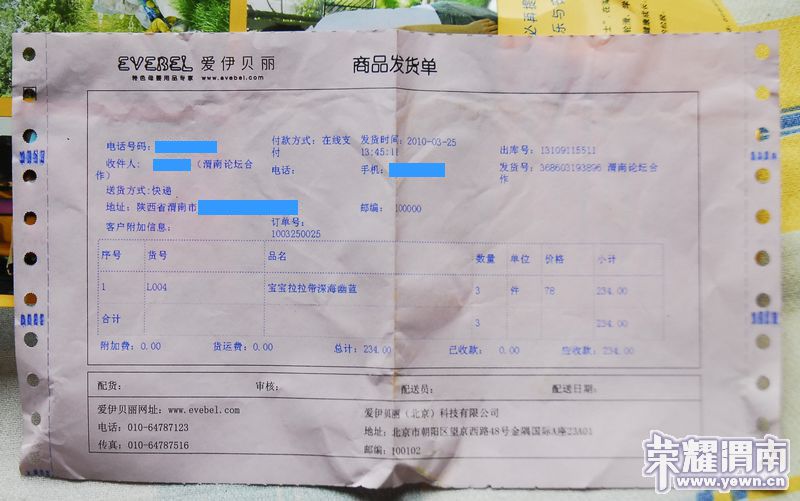 必再拨
乐与安
EVEBEL 爱伊贝丽
特色母婴用品专家 www.evebel.com
商品发货单
电话号码:
付款方式: 在线支付
发货时间: 2010-03-25 13:45:11
出库号: 13109115511
收件人: (渭南论坛合作)
电话:
手机:
发货号: 368603193896 渭南论坛合作
送货方式:快递
地址: 陕西省渭南市
邮编: 100000
客户附加信息:
订单号: 1003250025
序号 货号 品名 数量 单位 价格 小计
1 L004 宝宝拉拉带深海幽蓝 3 件 78 234.00
合计 3 234.00
附加费: 0.00 货运费: 0.00 总计: 234.00 已收款: 0.00 应收款: 234.00
配货: 审核: 配送员: 配送日期:
爱伊贝丽网址: www.evebel.com
爱伊贝丽(北京)科技有限公司
电话: 010-64787123
地址: 北京市朝阳区望京西路48号金隅国际A座23A01
传真: 010-64787516
邮编: 100102
荣耀渭南
www.yewn.cn